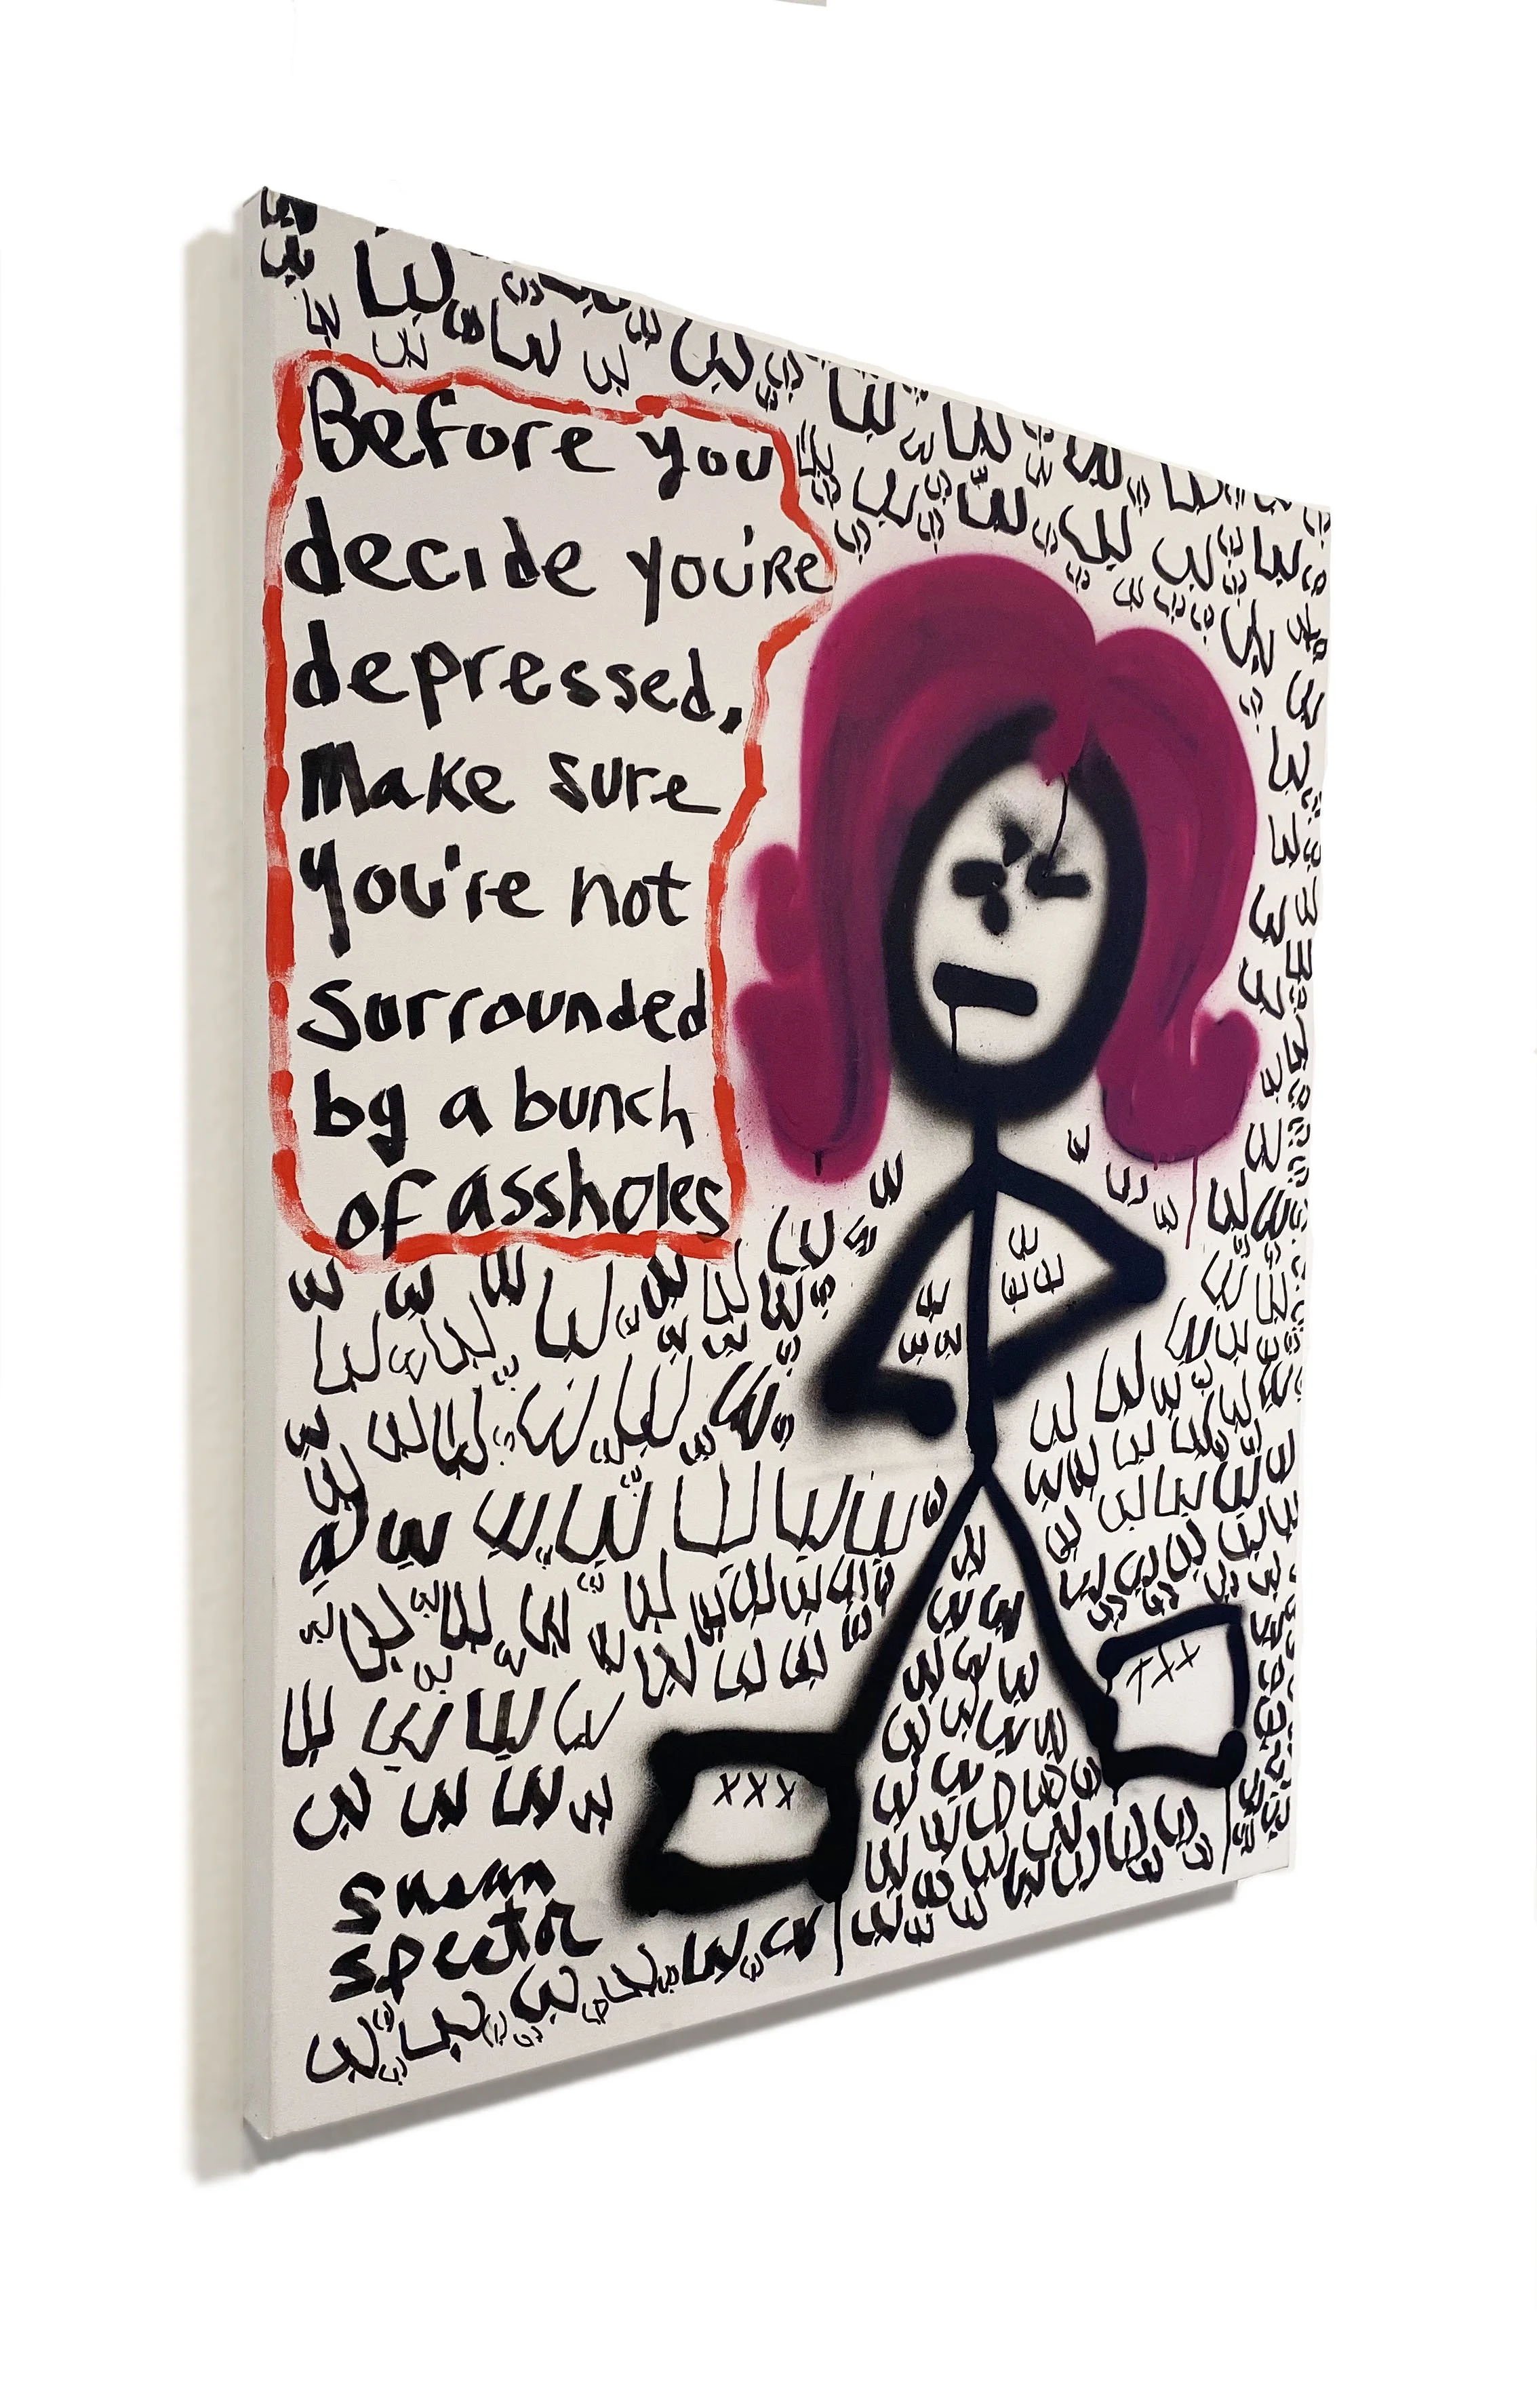 Before you
decide you're
depressed,
Make sure
you're not
surrounded
by a bunch
of assholes
xxx
xxx
susan
spector